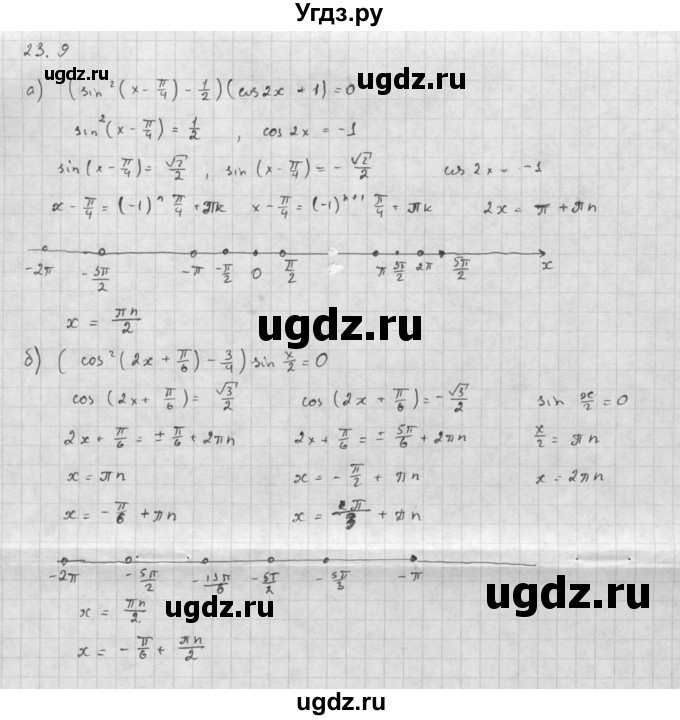 Угдз.ру
23.9
ugdz.ru ugdz.ru
а) (sin²(x - π/4) - 1/2)(cos 2x + 1) = 0
sin²(x - π/4) = 1/2 , cos 2x = -1
sin(x - π/4) = √2/2 , sin(x - π/4) = - √2/2 cos 2x = -1
x - π/4 = (-1)ⁿ π/4 + πk x - π/4 = (-1)ⁿ⁺¹ π/4 + πk 2x = π + πn
-2π -3π/2 -π -π/2 0 π/2 π 3π/2 2π 5π/2 x
x = πn/2
ugdz.ru
б) (cos²(2x + π/6) - 3/4) sin x/2 = 0
cos(2x + π/6) = √3/2 cos(2x + π/6) = - √3/2 sin x/2 = 0
2x + π/6 = ± π/6 + 2πn 2x + π/6 = ± 5π/6 + 2πn x/2 = πn
x = πn x = - π/2 + πn x = 2πn
x = - π/6 + πn x = π/3 + πn
-2π -5π/2 -13π/6 -5π/2 -5π/3 -π
x = πn/2
ugdz.ru ugdz.ru
x = - π/6 + πn/2
ugdz.ru